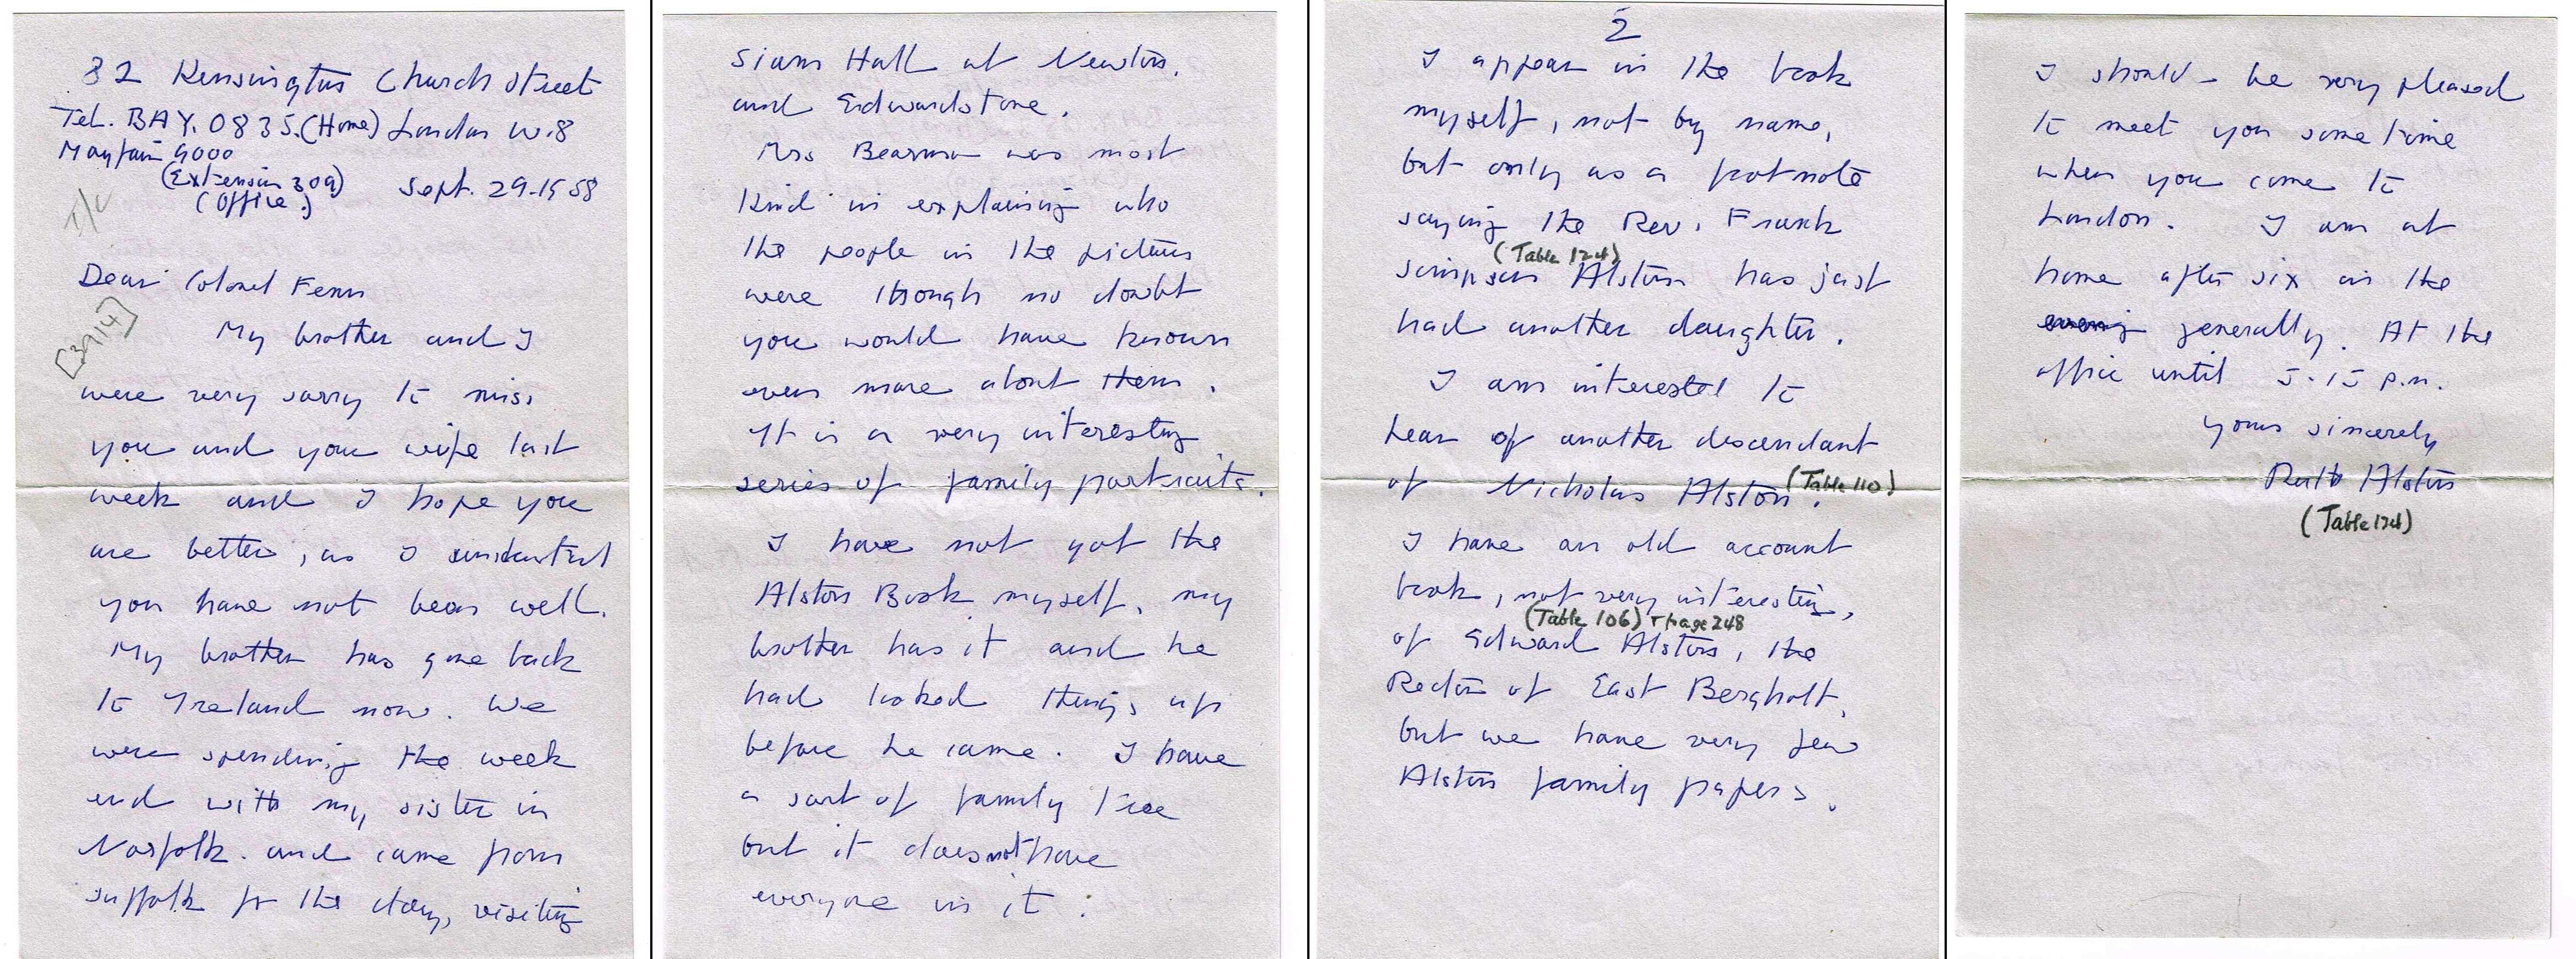 82 Kensington Church Street
Tel. BAY. 0835. (Home) London W.8
Mayfair 9000
(Extension 309) Sept. 29. 1958
(Office.)
T/C
Dear Colonel Fenn
[3914]
My brother and I
were very sorry to miss
you and your wife last
week and I hope you
are better, as I understand
you have not been well.
My brother has gone back
to Ireland now. We
were spending the week
end with my sister in
Norfolk. and came from
Suffolk for the day, visiting
Siam Hall at Newton.
and Edwardstone.
Mrs Bearman was most
kind in explaining who
the people in the pictures
were though no doubt
you would have known
even more about them.
It is a very interesting
series of family portraits.
I have not got the
Alston Book myself, my
brother has it and he
had looked things up
before he came. I have
a sort of family tree
but it does not have
everyone in it.
2
I appear in the book
myself, not by name,
but only as a footnote
saying the Rev. Frank
(Table 124)
Simpson Alston has just
had another daughter.
I am interested to
hear of another descendant
of Nicholas Alston (Table 110).
I have an old account
book, not very interesting,
(Table 106) + page 248
of Edward Alston, the
Rector of East Bergholt,
but we have very few
Alston family papers.
I should be very pleased
to meet you some time
when you come to
London. I am at
home after six in the
evening generally. At the
office until 5.15 p.m.
yours sincerely
Ruth Alston
(Table 124)